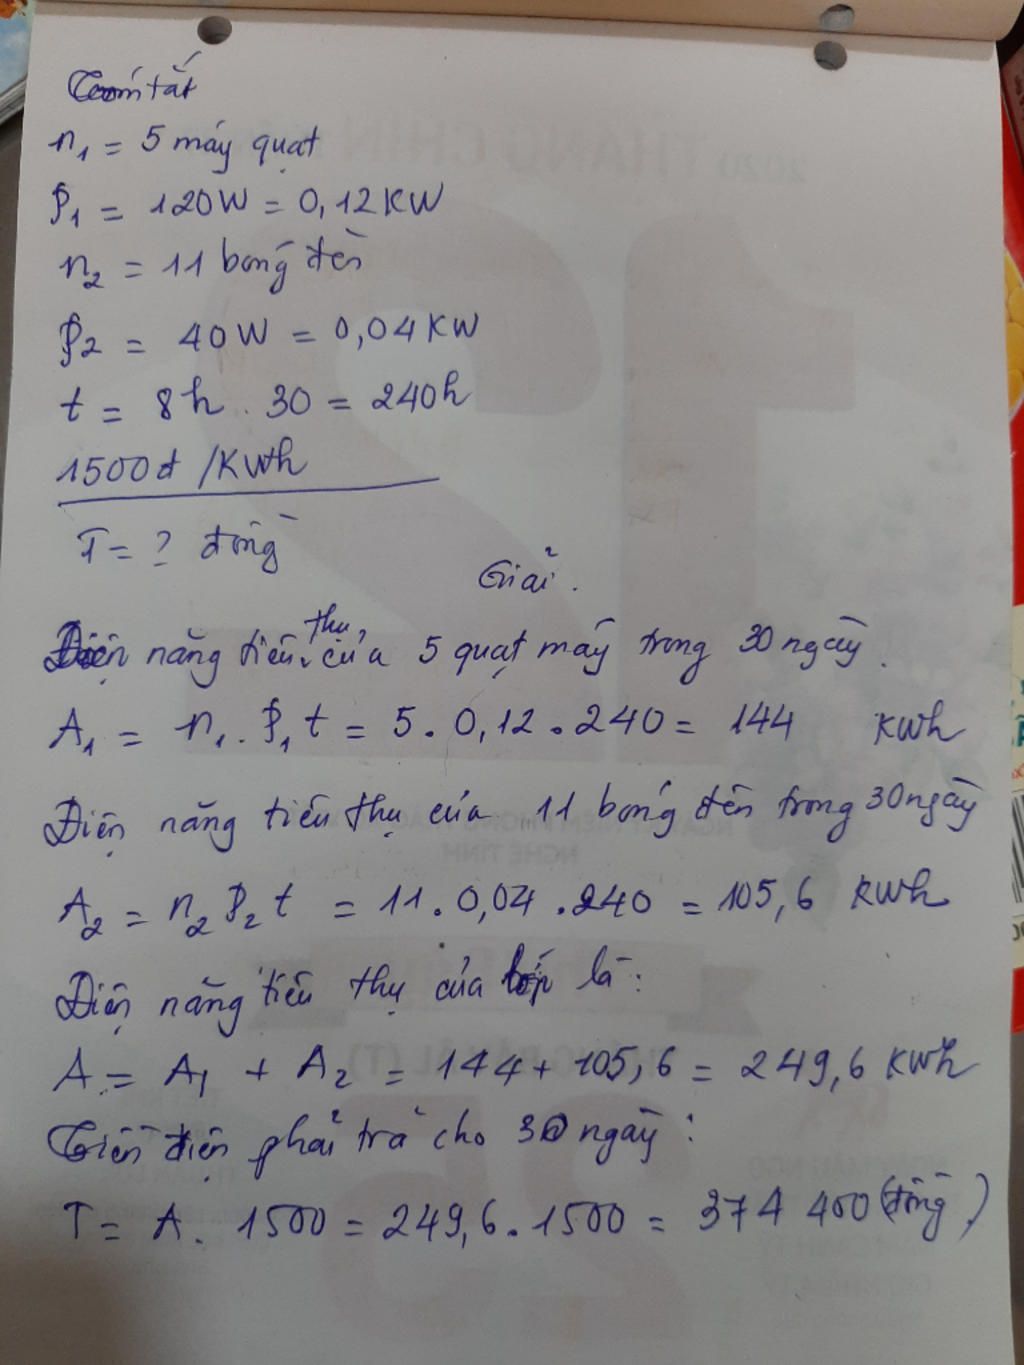 Tóm tắt
n₁ = 5 máy quạt
P₁ = 120W = 0,12KW
n₂ = 11 bóng đèn
P₂ = 40W = 0,04KW
t = 8h . 30 = 240h
1500đ /KWh
T = ? đồng
Giải.
Điện năng tiêu thụ của 5 quạt máy trong 30 ngày.
A₁ = n₁. P₁ t = 5 . 0,12 . 240 = 144 KWh
Điện năng tiêu thụ của 11 bóng đèn trong 30 ngày
A₂ = n₂ P₂ t = 11 . 0,04 . 240 = 105,6 KWh
Điện năng tiêu thụ của lớp là:
A = A₁ + A₂ = 144 + 105,6 = 249,6 KWh
Tiền điện phải trả cho 30 ngày:
T = A. 1500 = 249,6 . 1500 = 374 400 (đồng)